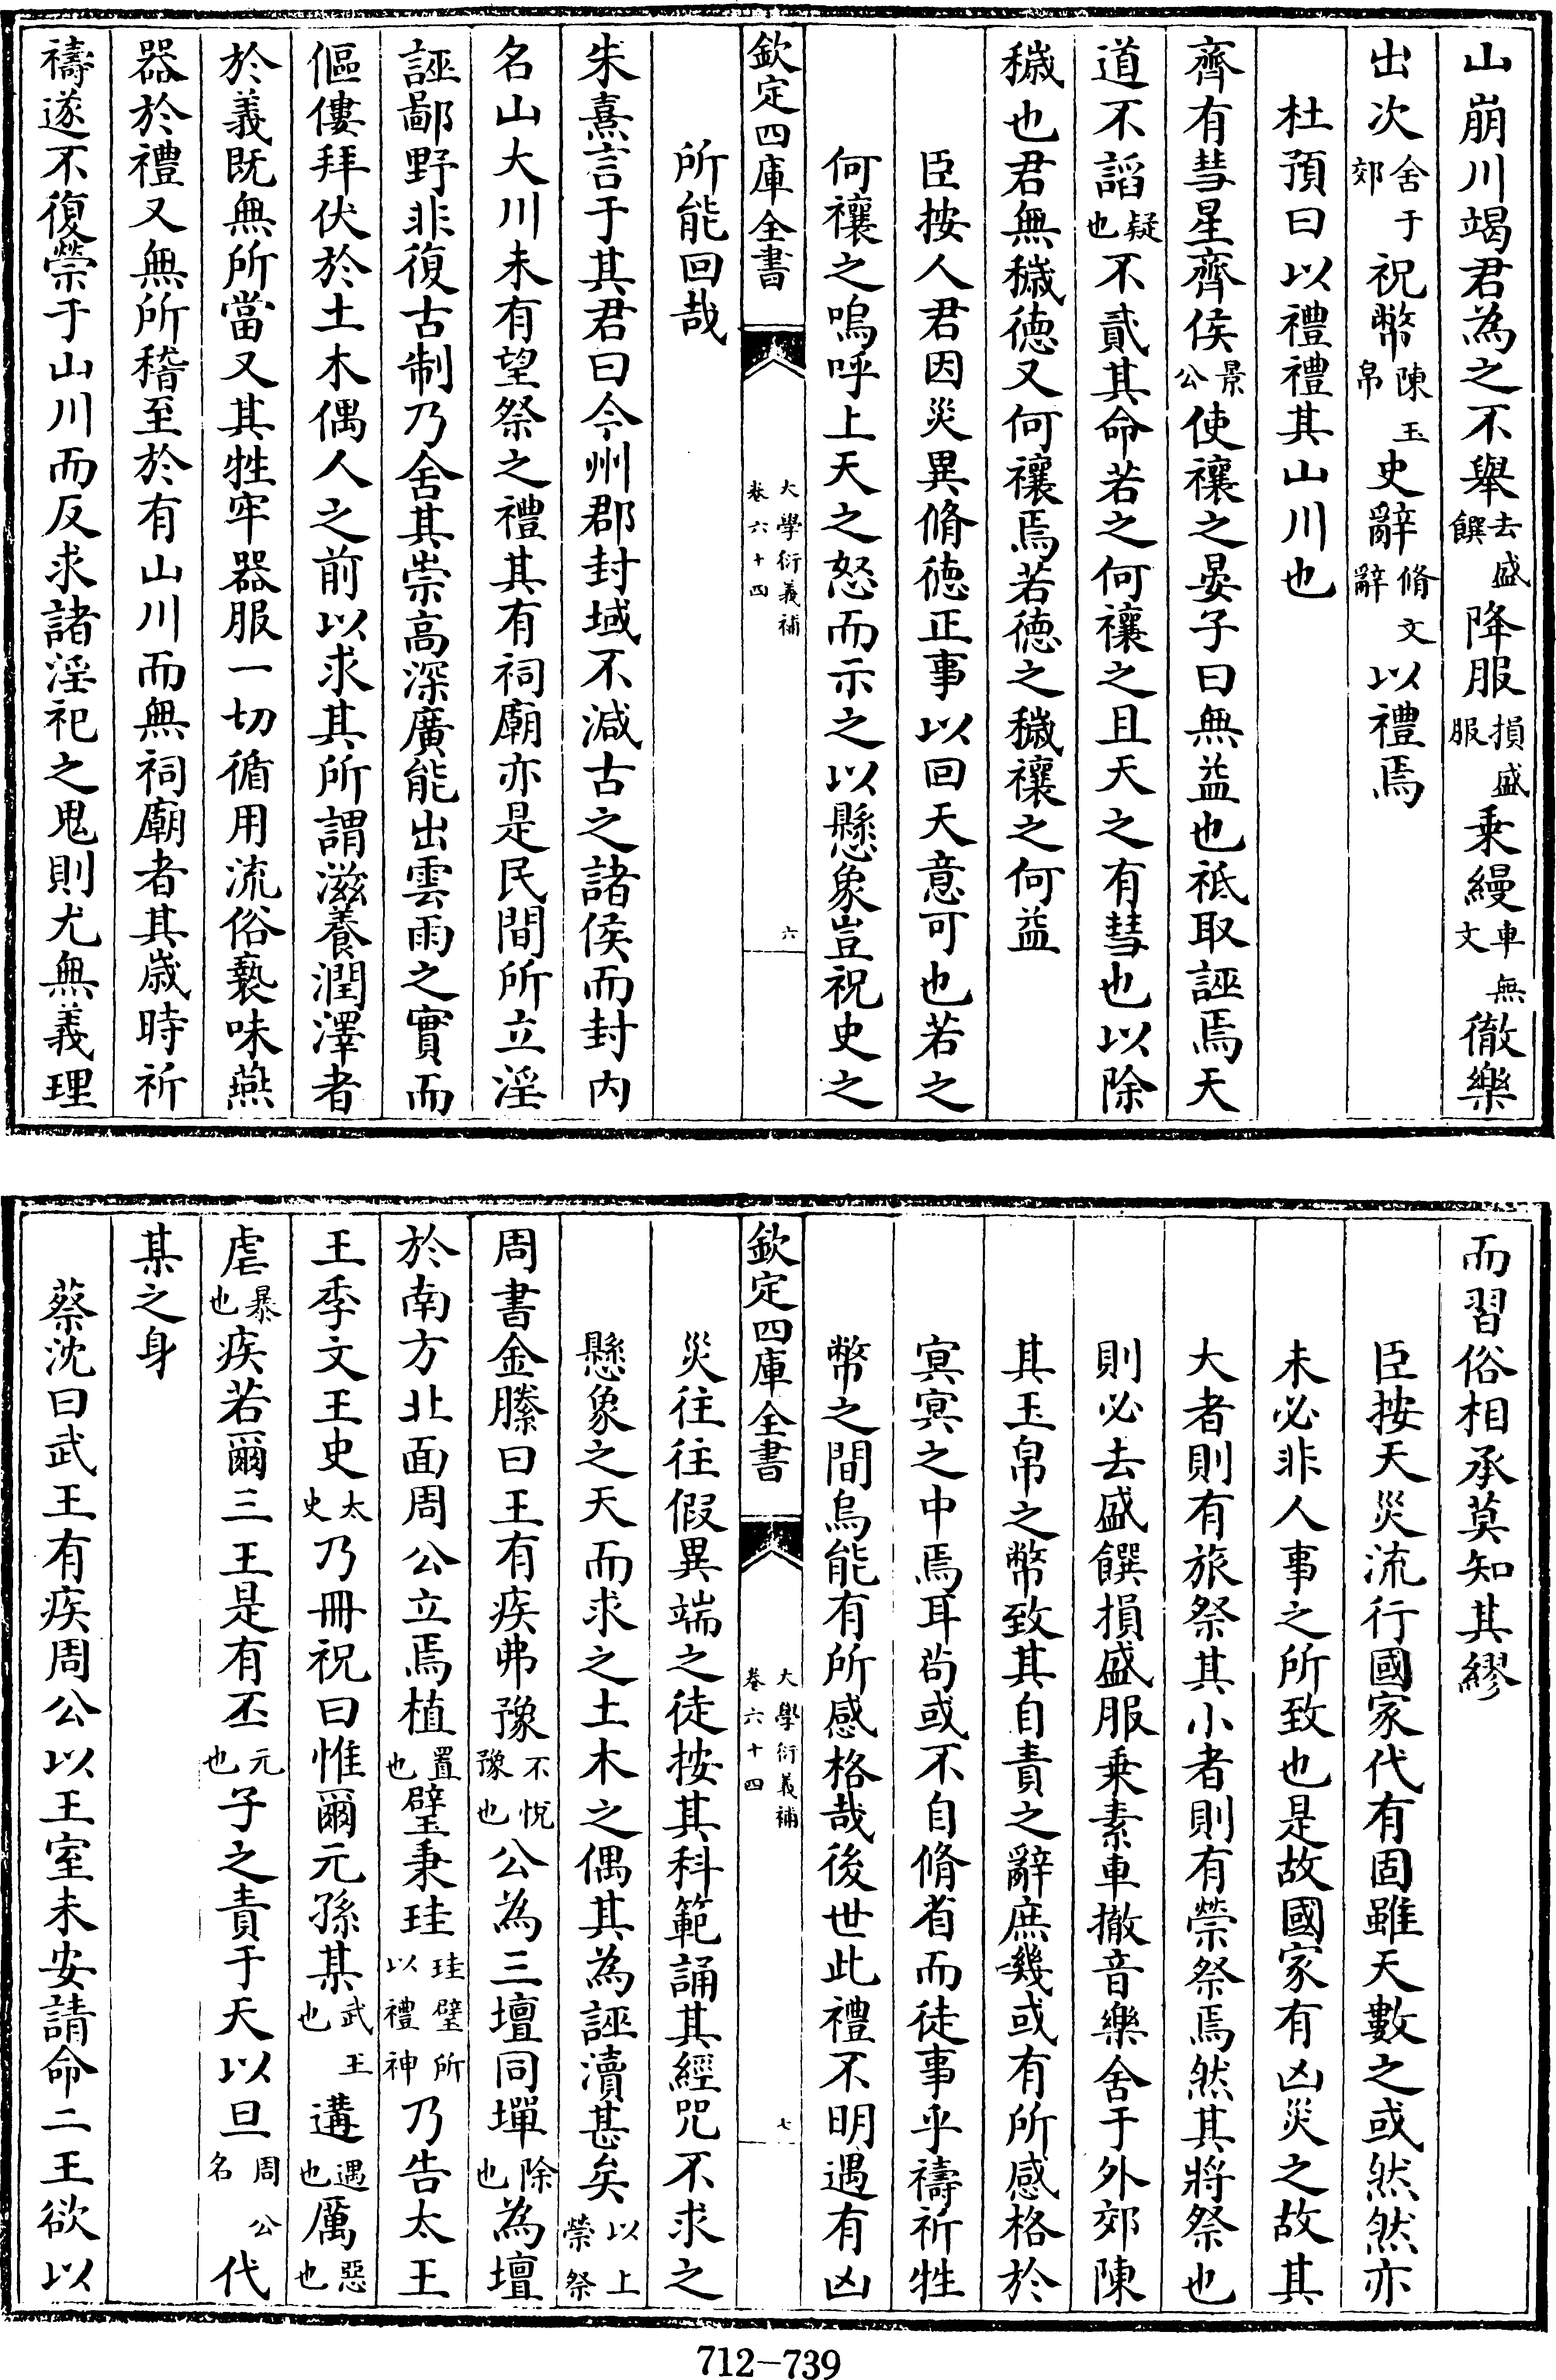 山崩川竭君為之不舉去盛饌降服損盛服乗縵車無文徹樂
出次舍于郊祝幣陳玉帛史辭脩文辭以禮焉
杜預曰以禮禮其山川也
齊有彗星齊侯景公使禳之晏子曰無益也祗取誣焉天
道不謟疑也不貳其命若之何禳之且天之有彗也以除
穢也君無穢徳又何禳焉若徳之穢禳之何益
臣按人君因災異脩徳正事以回天意可也若之
何禳之嗚呼上天之怒而示之以懸象豈祝史之
欽定四庫全書
大學衍義補
卷六十四
六
所能回哉
朱熹言于其君曰今州郡封域不減古之諸侯而封内
名山大川未有望祭之禮其有祠廟亦是民間所立淫
誣鄙野非復古制乃舍其崇高深廣能出雲雨之實而
傴僂拜伏於土木偶人之前以求其所謂滋養潤澤者
於義既無所當又其牲牢器服一切循用流俗褻味燕
器於禮又無所稽至於有山川而無祠廟者其嵗時祈
禱遂不復禜于山川而反求諸淫祀之鬼則尤無義理
而習俗相承莫知其繆
臣按天災流行國家代有固雖天數之或然然亦
未必非人事之所致也是故國家有凶災之故其
大者則有旅祭其小者則有禜祭焉然其將祭也
則必去盛饌損盛服乗素車撤音樂舍于外郊陳
其玉帛之幣致其自責之辭庶幾或有所感格於
㝠㝠之中焉耳尚或不自脩省而徒事乎禱祈牲
幣之間烏能有所感格哉後世此禮不明遇有凶
欽定四庫全書
大學衍義補
卷六十四
七
災往往假異端之徒按其科範誦其經咒不求之
懸象之天而求之土木之偶其為誣瀆甚矣以上禜祭
周書金縢曰王有疾弗豫不悅豫也公為三壇同墠除也為壇
於南方北面周公立焉植置也璧秉珪珪璧所以禮神乃告太王
王季文王史太史乃冊祝曰惟爾元孫某武王也遘遇也厲惡也
虐暴也疾若爾三王是有丕元也子之責于天以旦周公名代
某之身
蔡沈曰武王有疾周公以王室未安請命二王欲以
712-739